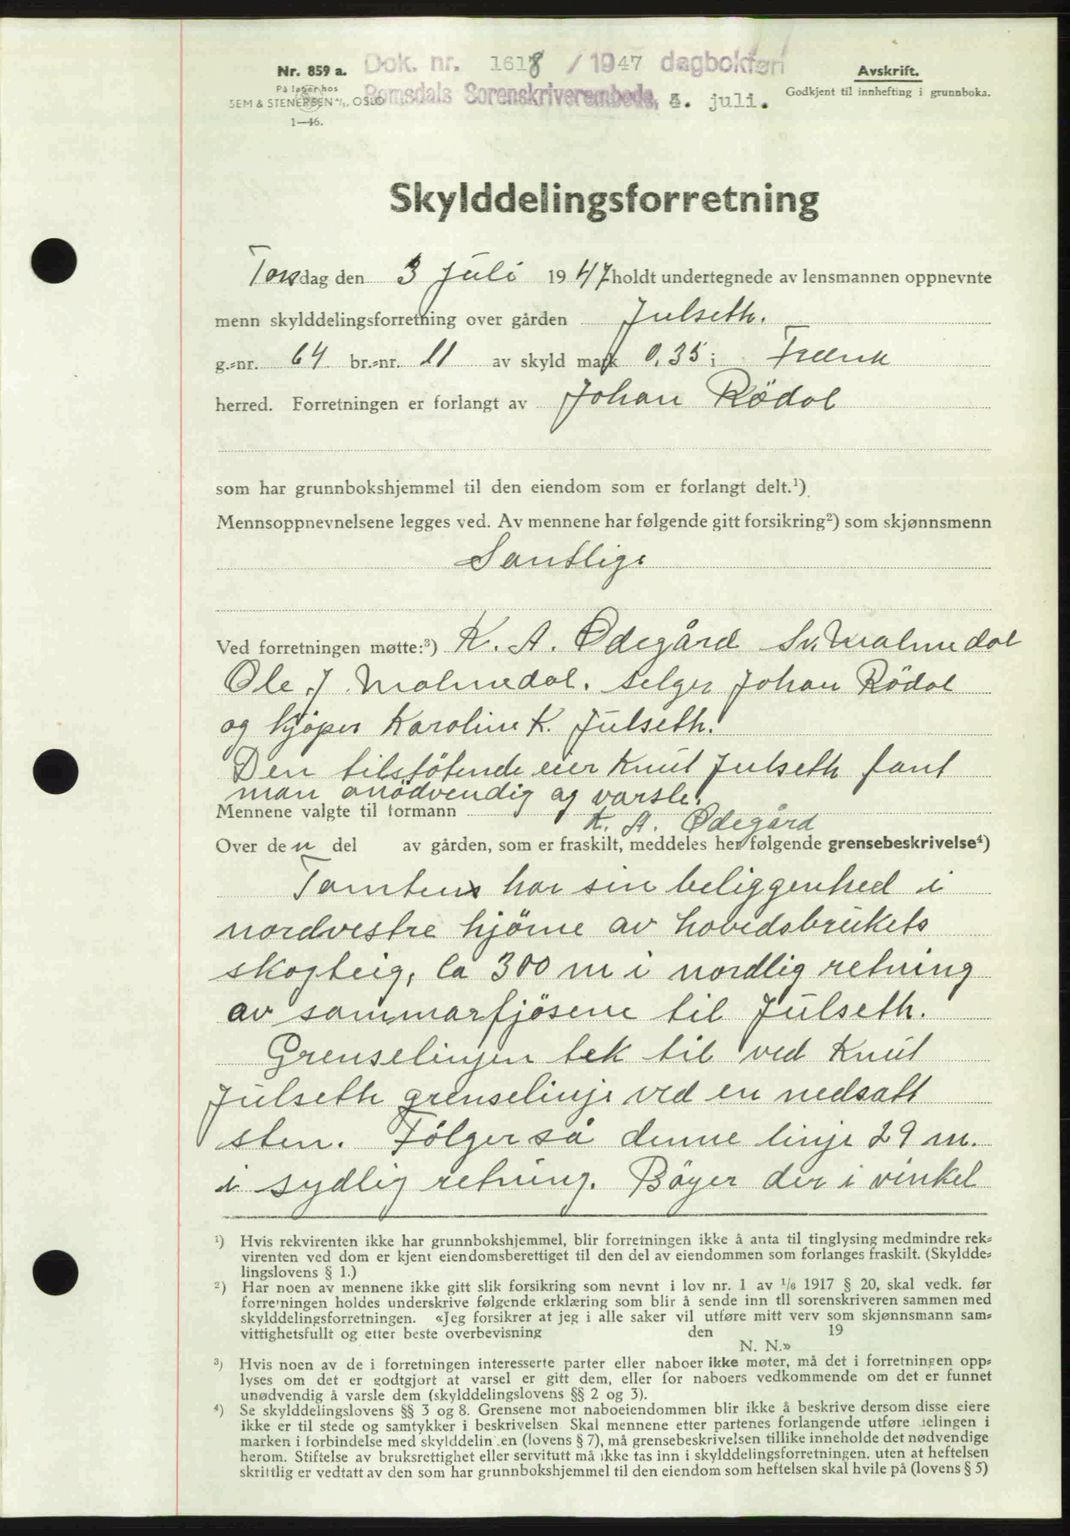 Nr. 859 a.
På lager hos
SEM & STENERSEN A/S, OSLO
1—46.
Dok. nr. 1618 / 1947 dagboken
Romsdals Sorenskriverembede, 5. juli.
Avskrift.
Godkjent til innhefting i grunnboka.
Skylddelingsforretning
Torsdag den 3 Juli 1947 holdt undertegnede av lensmannen oppnevnte
menn skylddelingsforretning over gården Julseth.
g.-nr. 64 br.-nr. 11 av skyld mark 0,35 i Fræna
herred. Forretningen er forlangt av Johan Rödal
som har grunnbokshjemmel til den eiendom som er forlangt delt.¹)
Mennsoppnevnelsene legges ved. Av mennene har følgende gitt forsikring²) som skjønnsmenn
Samtlige
Ved forretningen møtte:³) K. A. Ødegård Sv. Malmedal
Ole J. Malmedal. selger Johan Rödal
og kjöper Karoline K. Julseth.
Den tilstötende eier Knut Julseth fant
man onödvendig og varsle.
Mennene valgte til formann K. A. Ødegård
Over den del av gården, som er fraskilt, meddeles her følgende grensebeskrivelse⁴)
Tomten har sin beliggenhed i
nordvestre hjörne av hovedsbrukets
skogteig, ca 300 m i nordlig retning
av sommarfjösene til Julseth.
Grenselinjen tek til ved Knut
Julseth grenselinje ved en nedsatt
sten. Fölger så denne linje 29 m.
i sydlig retning. Böyer der i vinkel
¹) Hvis rekvirenten ikke har grunnbokshjemmel, blir forretningen ikke å anta til tinglysing medmindre rek-
virenten ved dom er kjent eiendomsberettiget til den del av eiendommen som forlanges fraskilt. (Skyldde-
lingslovens § 1.)
²) Har noen av mennene ikke gitt slik forsikring som nevnt i lov nr. 1 av 1/6 1917 § 20, skal vedk. før
forretningen holdes underskrive følgende erklæring som blir å sende inn til sorenskriveren sammen med
skylddelingsforretningen. «Jeg forsikrer at jeg i alle saker vil utføre mitt verv som skjønnsmann sam-
vittighetsfullt og etter beste overbevisning den 19
N. N.»
³) Hvis noen av de i forretningen interesserte parter eller naboer ikke møter, må det i forretningen opp-
lyses om det er godtgjort at varsel er gitt dem, eller for naboers vedkommende om det er funnet
unødvendig å varsle dem (skylddelingslovens §§ 2 og 3).
⁴) Se skylddelingslovens §§ 3 og 8. Grensene mot naboeiendommen blir ikke å beskrive dersom disse eiere
ikke er til stede og samtykker i beskrivelsen Skal mennene etter partenes forlangende utføre delingen i
marken i forbindelse med skylddelingen (lovens § 7), må grensebeskrivelsen tillike inneholde det nødvendige
herom. Stiftelse av bruksrettighet eller servitutt må ikke tas inn i skylddelingsforretningen, uten at heftelsen
skriftlig er vedtatt av den som har grunnbokshjemmel til den eiendom som heftelsen skal hvile på (lovens § 5)